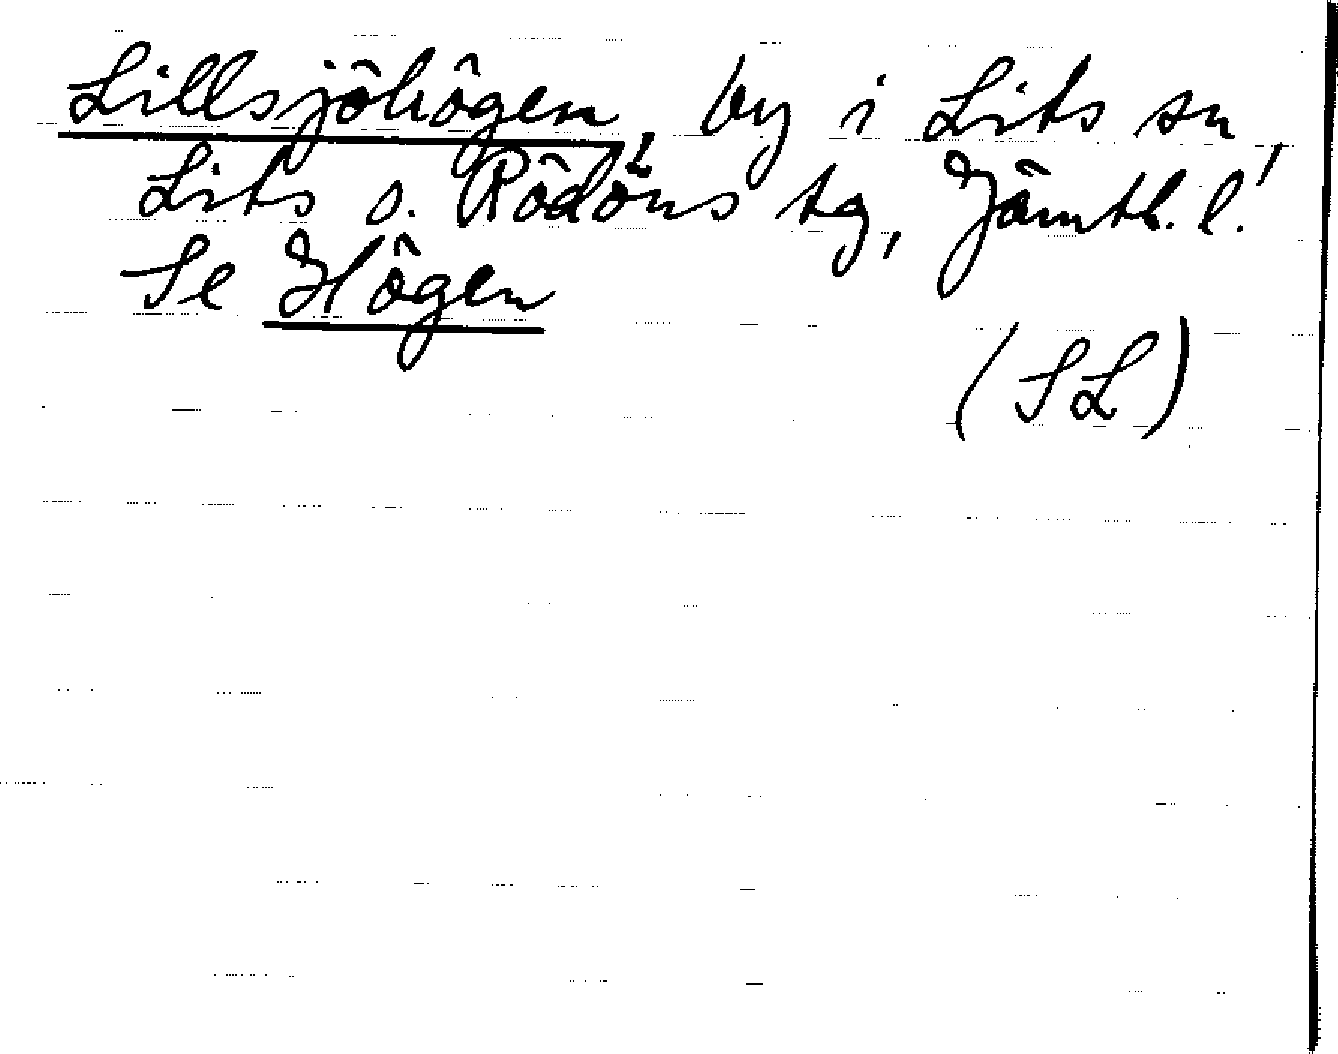 Lillsjöhögen, by i Lits sn,
Lits o. Rödöns tg, Jämtl. l.
Se Högen
(SL)